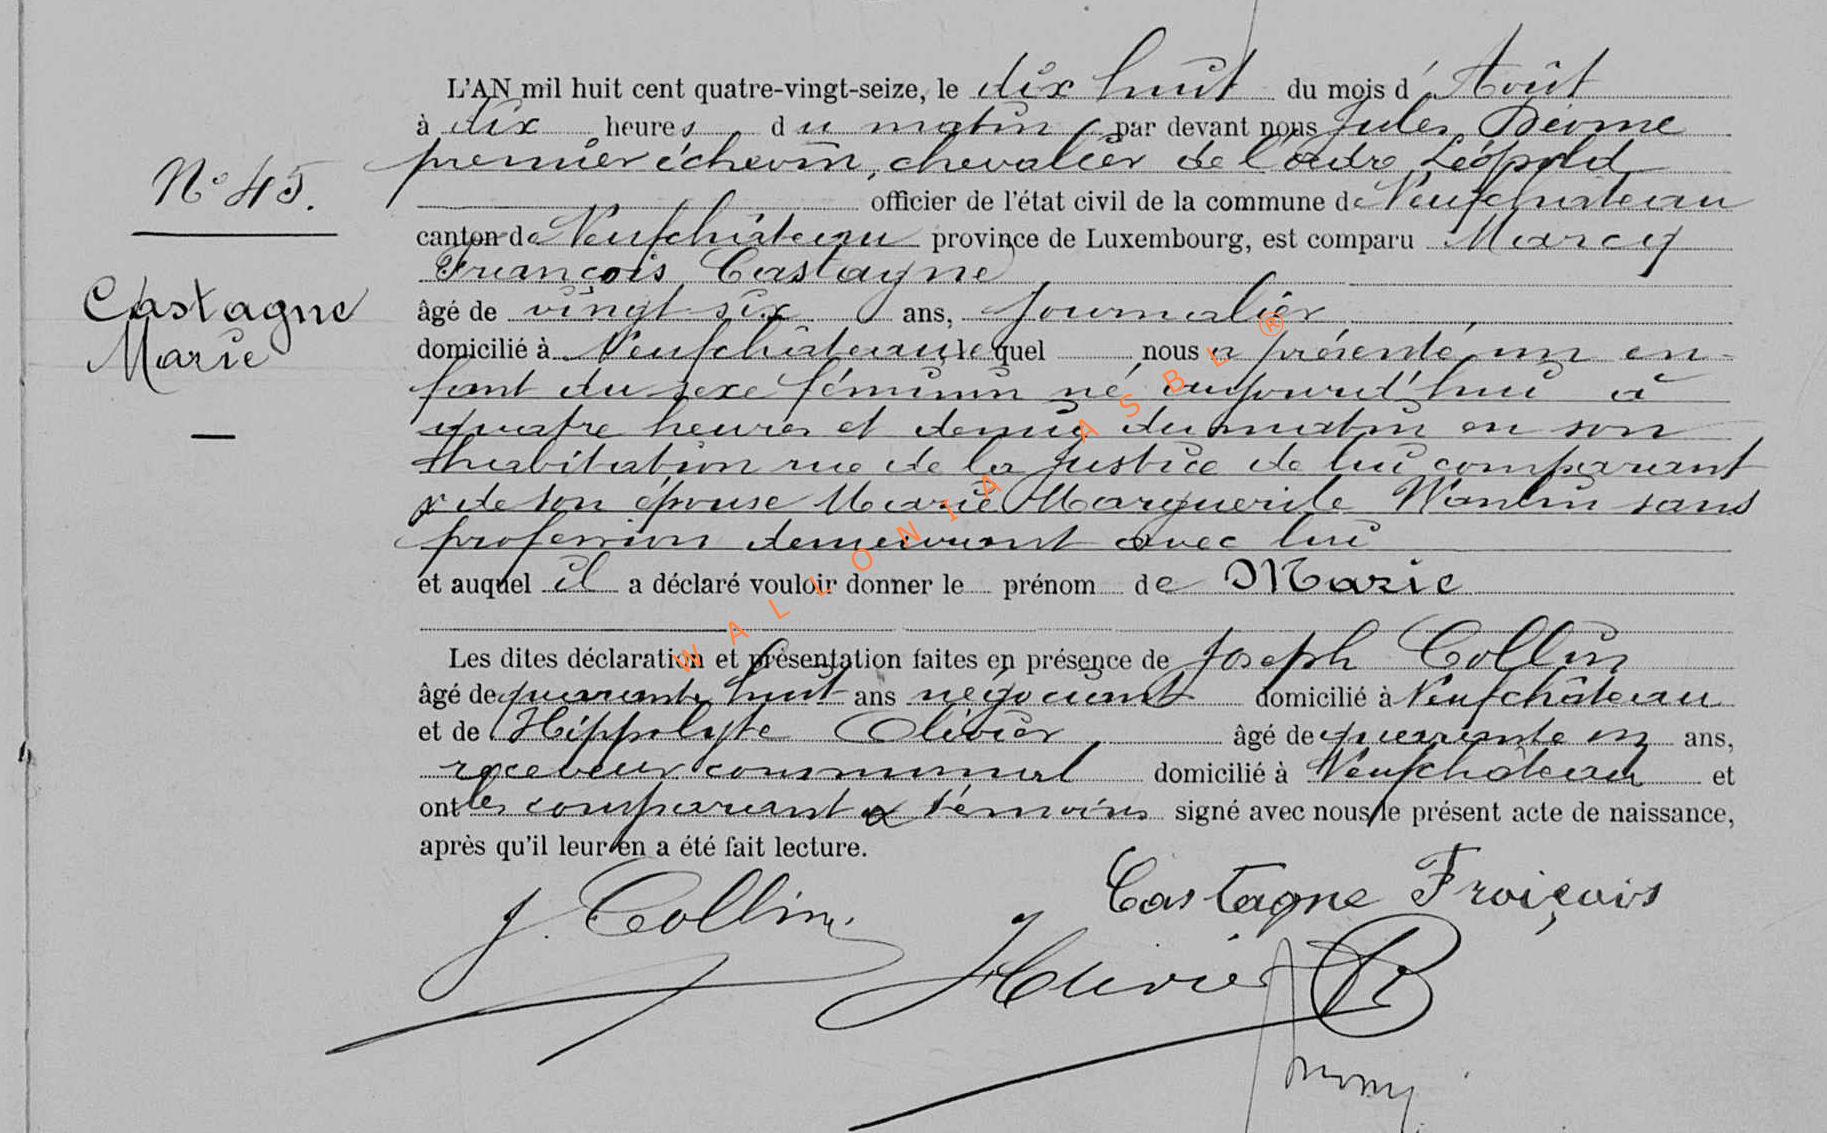 L'AN mil huit cent quatre-vingt-seize, le dix huit du mois d' Août
à dix heures du matin par devant nous Jules
premier échevin, chevalier de l'ordre Léopold
officier de l'état civil de la commune de Neufchateau
canton de Neufchâteau province de Luxembourg, est comparu
François Castagne
âgé de vingt six ans, journalier
domicilié à Neufchâteau, lequel nous a présenté un en-
fant du sexe féminin né aujourd'hui à
quatre heures et demie du matin en son
habitation rue de la Justice de lui comparant
& de son épouse Marie Marguerite sans
profession demeurant avec lui
et auquel il a déclaré vouloir donner le prénom de Marie
Les dites déclaration et présentation faites en présence de Joseph Collin
âgé de quarante huit ans négociant domicilié à Neufchâteau
et de Hippolyte Olivier âgé de quarante un ans,
receveur communal domicilié à Neufchâteau et
ont les comparant & témoins signé avec nous le présent acte de naissance,
après qu'il leur en a été fait lecture.
N° 45.
Castagne
Marie
Castagne Froiçois
J. Collin
HOlivier
WALLONIA ASBL ®